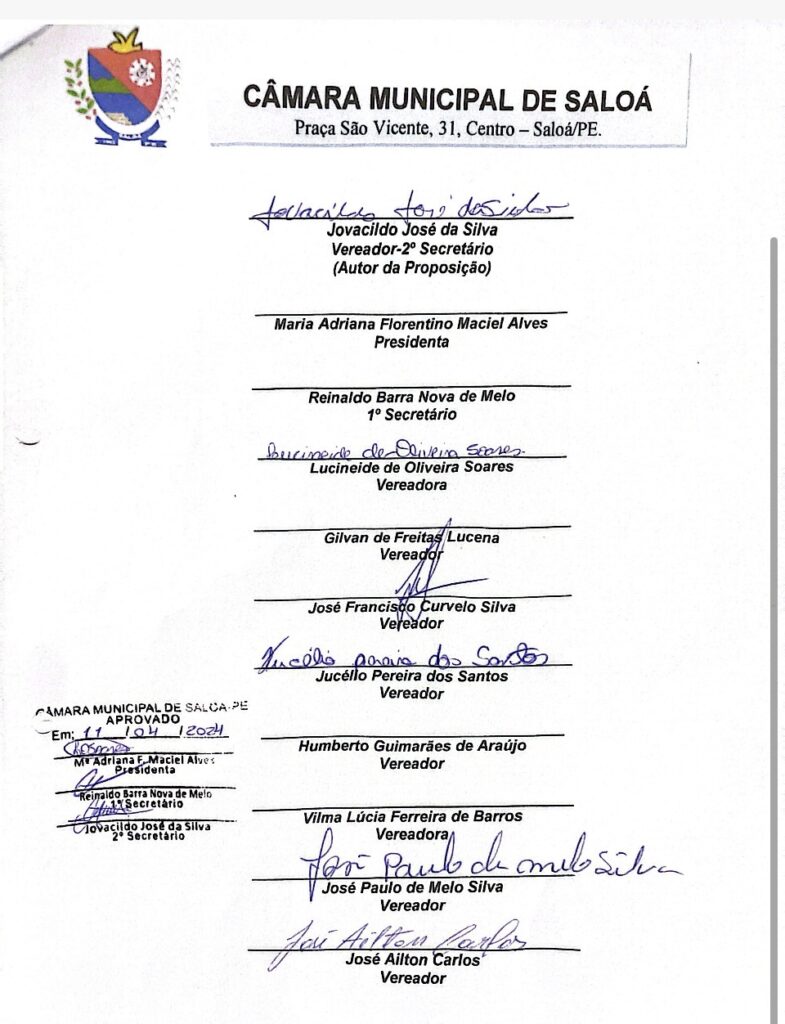 CÂMARA MUNICIPAL DE SALOÁ
Praça São Vicente, 31, Centro – Saloá/PE.
Jovacildo José da Silva
Jovacildo José da Silva
Vereador-2º Secretário
(Autor da Proposição)
Maria Adriana Florentino Maciel Alves
Presidenta
Reinaldo Barra Nova de Melo
1º Secretário
Lucineide de Oliveira Soares
Lucineide de Oliveira Soares
Vereadora
Gilvan de Freitas Lucena
Vereador
José Francisco Curvelo Silva
Vereador
Jucélio Pereira dos Santos
Jucéllo Pereira dos Santos
Vereador
CÂMARA MUNICIPAL DE SALOÁ-PE
APROVADO
Em: 11 / 04 / 2024
Mª Adriana F. Maciel Alves
Presidenta
Reinaldo Barra Nova de Melo
1º Secretário
Jovacildo José da Silva
2º Secretário
Humberto Guimarães de Araújo
Vereador
Vilma Lúcia Ferreira de Barros
Vereadora
José Paulo de Melo Silva
José Paulo de Melo Silva
Vereador
José Ailton Carlos
José Ailton Carlos
Vereador